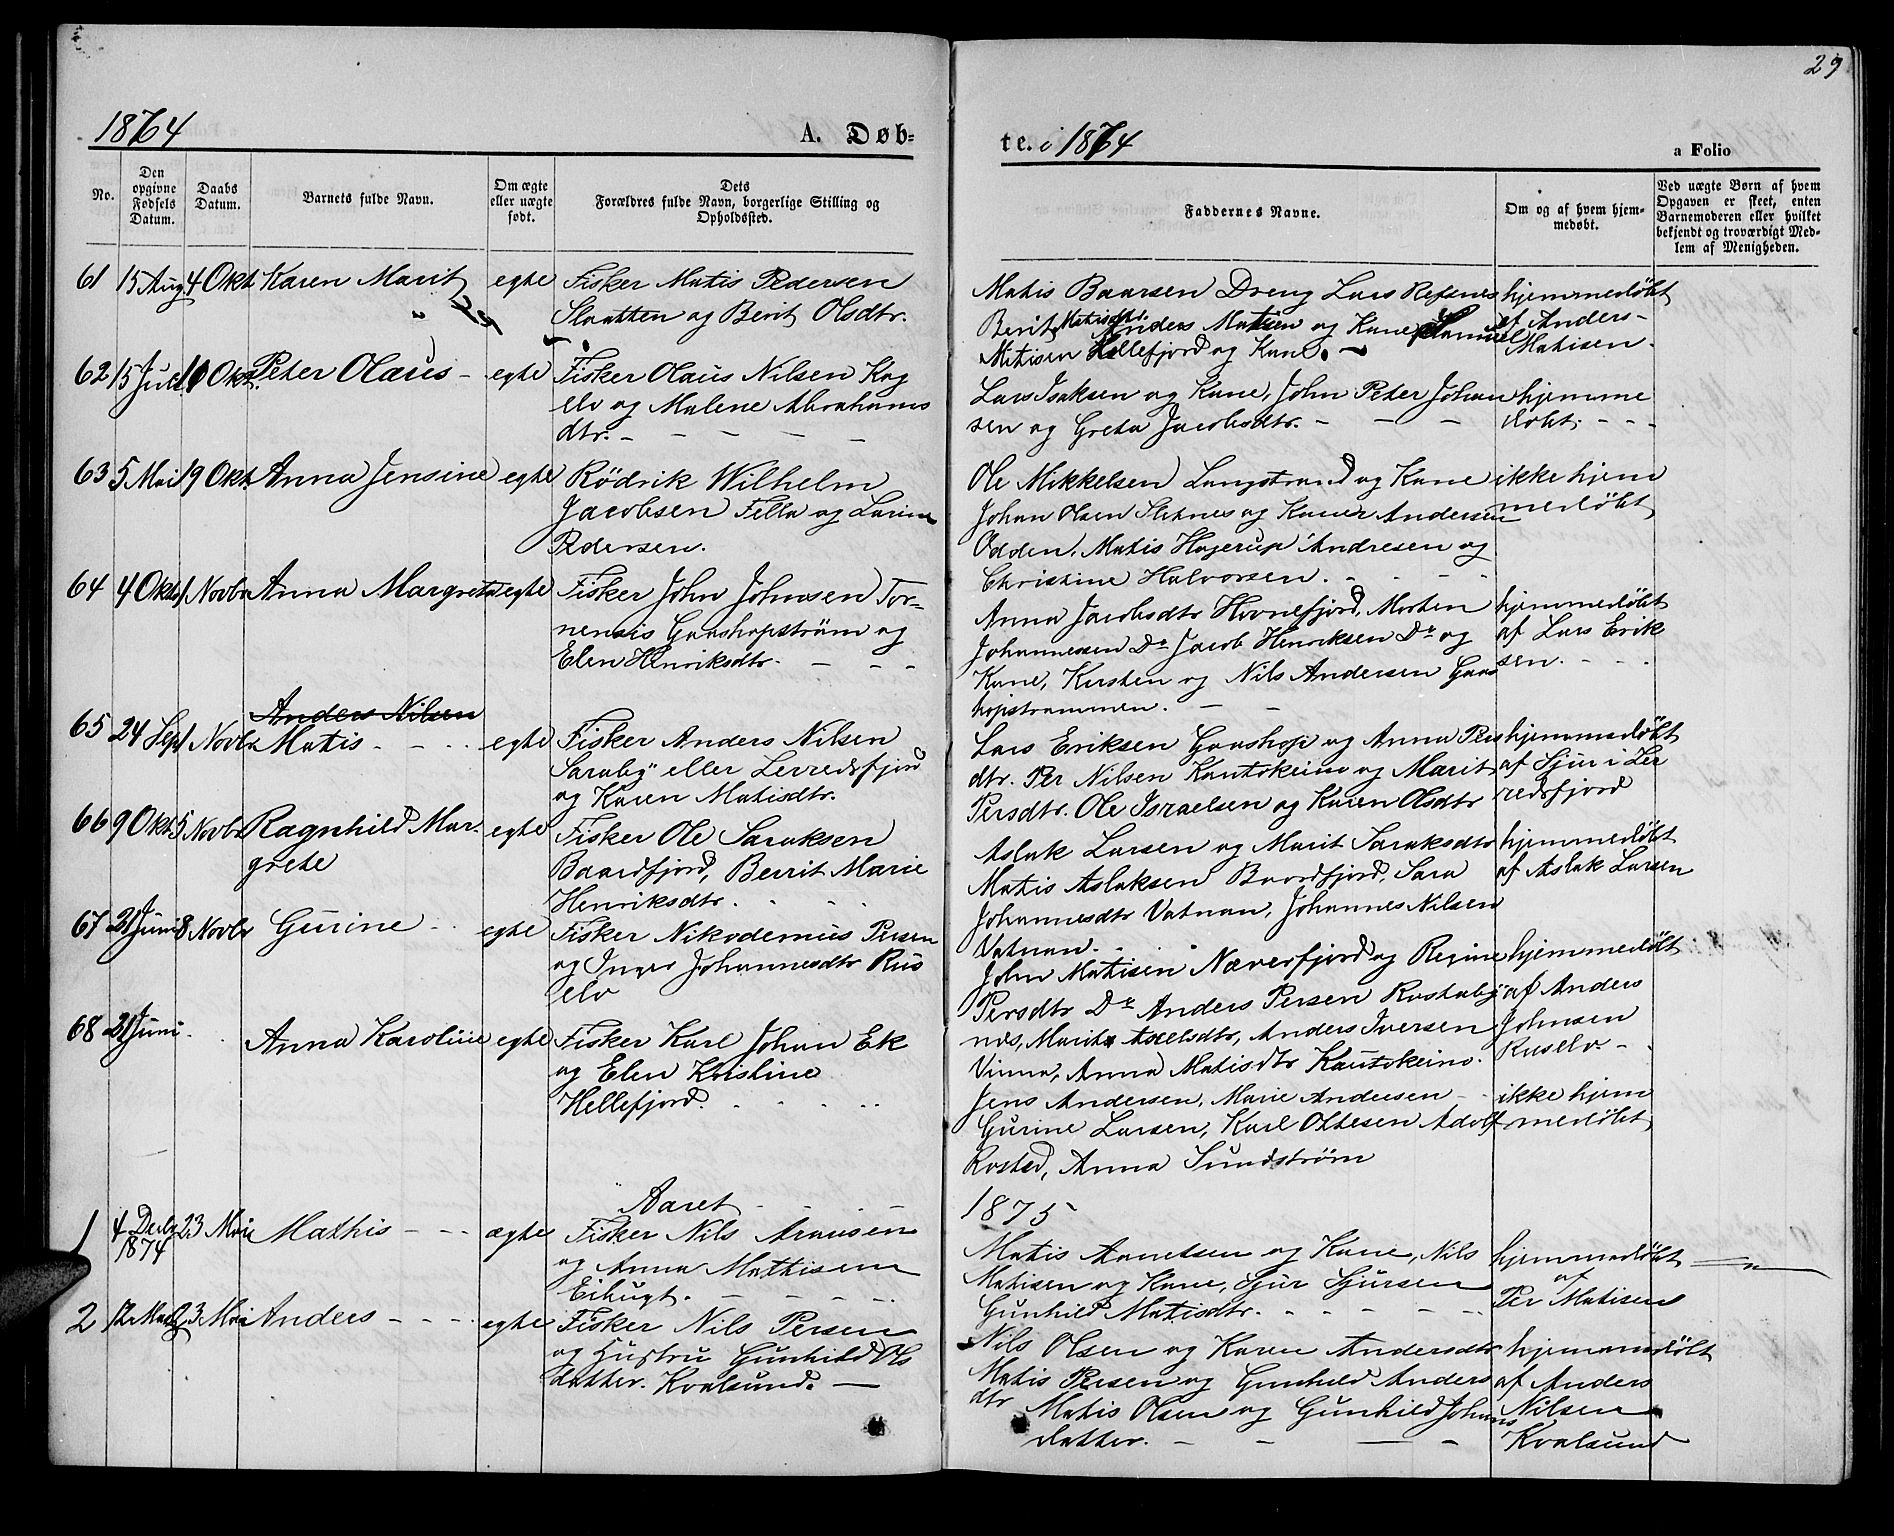 29
1874
A. Døb-
te. i 1874
a Folio
No.
Den opgivne Fødsels Datum.
Daabs Datum.
Barnets fulde Navn.
Om ægte eller uægte født.
Dets Forældres fulde Navn, borgerlige Stilling og Opholdssted.
Faddernes Navne.
Om og af hvem hjemmedøbt.
Ved uægte Børn af hvem Opgaven er skeet, enten Barnemoderen eller hvilket bekjendt og troværdigt Medlem af Menigheden.
61 15 Aug 4 Okt Karen Marit egte Fisker Matis Pedersen
Slaatten og Berit Olsdtr.
Matis Baarsen Dreng Lars Refsnes
Berit Matisdtr. Anders Matisen og Kone
Matisen Hellefjord og Kone.
hjemmedøbt
af Anders
Matisen.
62 15 Juli Okt. Peter Olaus egte Fisker Olaus Nilsen Kog
elv og Malene Abrahams
dtr.
Lars Isaksen og Kone, John Peter Johan
sen og Greta Jacobsdtr.
hjemme
døbt.
63 5 Mai 19 Okt. Anna Jensine egte Rödrik Wilhelm
Jacobsen Fella og Larine
Pedersen.
Ole Mikkelsen Langstrand og Kone
Johan Olsen Sletnes og Kone Andersen
Odden. Matis Hagerup Andresen og
Christine Halvorsen.
ikke hjem
medøbt
64 4 Okt 1 Novbr Anna Margreta egte Fisker John Johnsen Tor-
nensis Gaashopström og
Elen Henriksdtr.
Anna Jacobsdtr Hovnefjord, Morten
Johannessen Do Jacob Henriksen Do og
Kone, Kirsten og Nils Andersen Gaas
hopstrommen.
hjemmedøbt
af Lars Erik
sen.
65 24 Sept 1 Novbr Anders Nilsen
Matis egte Fisker Anders Nilsen
Saraby eller Lerredsfjord
og Karen Matisdtr.
Lars Eriksen Gaashop og Anna Pers
dtr. Per Nilsen Kautokeino og Marit
Persdtr. Ole Israelsen og Karen Olsdtr
hjemmedøbt
af Sjur i Ler
redsfjord
66 9 Okt 5 Novbr Ragnhild Mar-
grete egte Fisker Ole Saraksen
Baardfjord, Berrit Marie
Henriksdtr.
Aslak Larsen og Marit Saraksdtr
Matis Aslaksen Baardfjord, Sara
Johannesdtr Vatnan, Johannes Nilsen
Vatnan.
hjemmedøbt
af Aslak Larsen
67 21 Juni 8 Novbr Gurine egte Fisker Nikodemus Persen
og Inger Johannesdtr Rus
elv
John Matisen Næverfjord og Regine
Persdtr Do Anders Persen Rastaby
nes, Marit Axelsdtr, Anders Iversen
Vinna, Anna Matisdtr Kautokeino.
hjemmedøbt
af Anders
Johnsen
Ruselv.
68 21 Juni Anna Karoline egte Fisker Karl Johan Ek
og Elen Kristine
Hellefjord.
Jens Andersen, Marie Andersen
Gurine Larsen, Karl Ottesen Adolf
Rosted, Anna Sundström
ikke hjem
medøbt
Aaret
1875
1 4 Decbr 1874 23 Mai Mathis ægte Fisker Nils
og Anna Mathisen
Eibugt.
Matis Aanetsen og Kone, Nils
Matisen og Kone, Sjur Sjursen
Gunhild Matisdtr.
hjemmedøbt
af
Per Matisen
2 12 23 Mai Anders egte Fisker Nils Persen
og Hustru Gunhild Ols
datter. Kvalsund.
Nils Olsen og Karen Andersdtr
Matis Persen og Gunhild Anders
dtr Matis Olsen og Gunhild Johans
datter.
hjemmedøbt
af Anders
Nilsen
Kvalsund